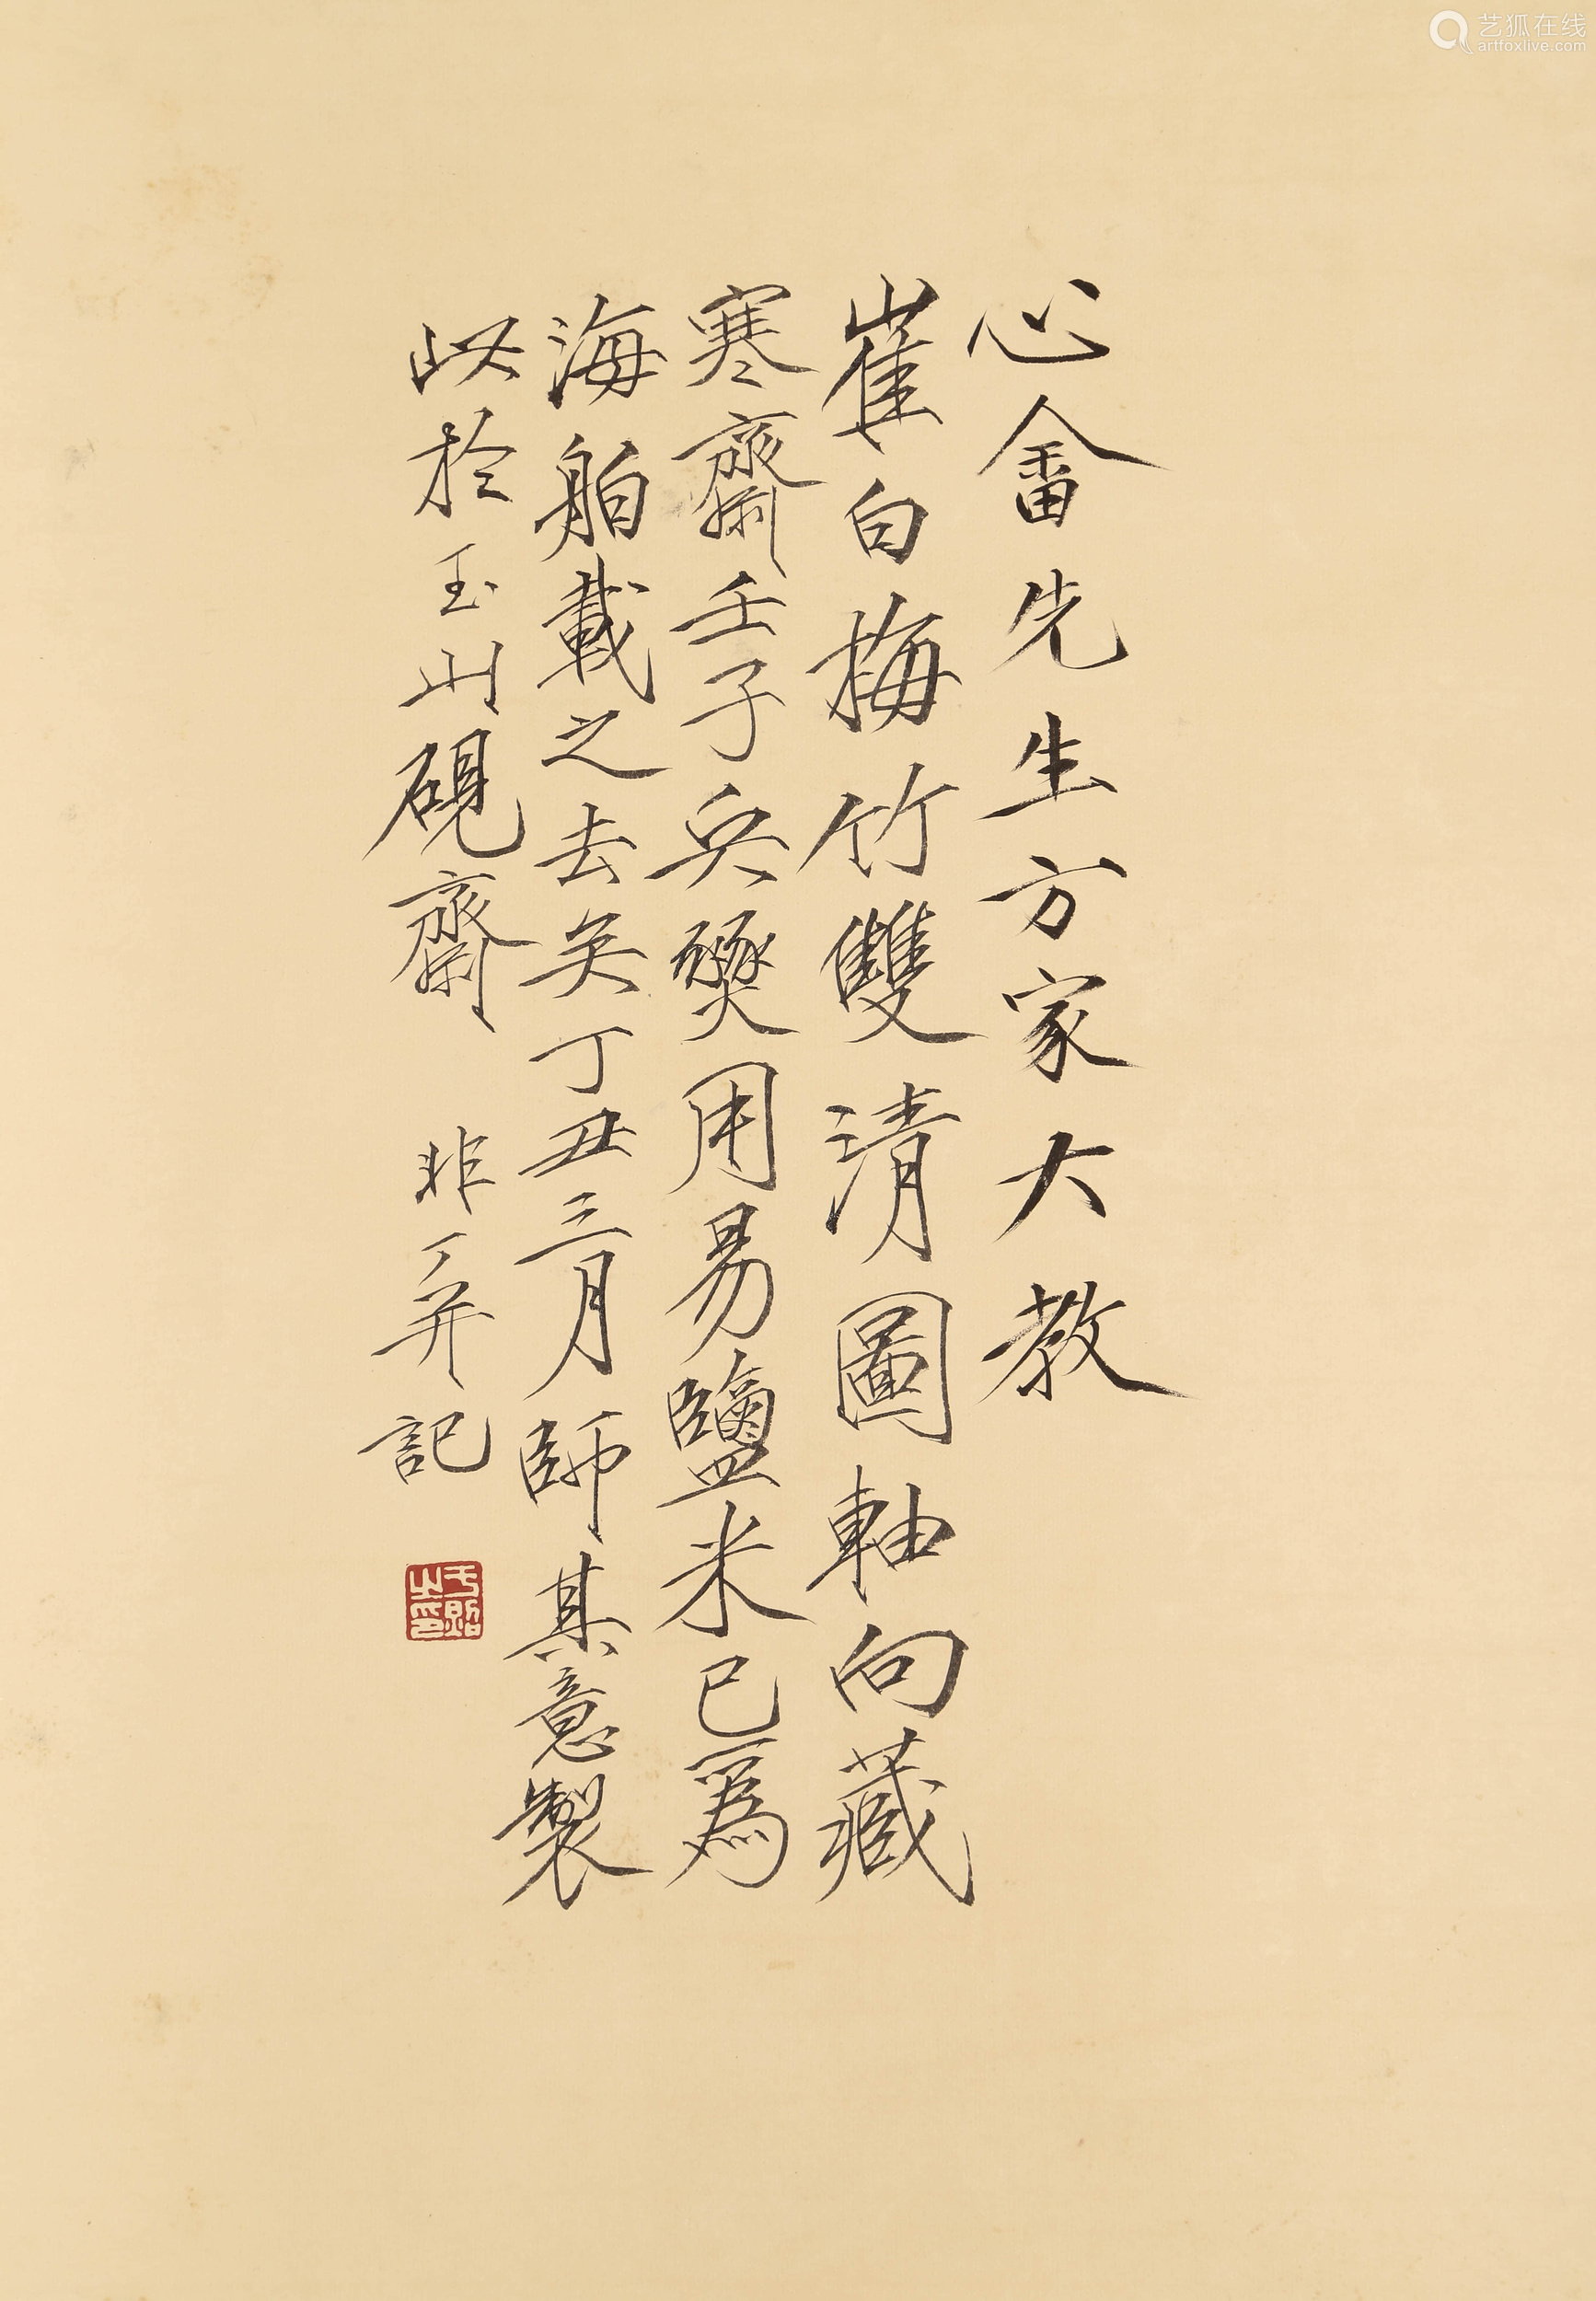 心畬先生方家大教
崔白梅竹雙清圖軸向藏
寒齋壬子兵燹用易鹽米已為
海舶載之去矣丁丑三月師其意製
此於玉山硯齋 非厂并記
于照之印
艺狐在线
artfoxlive.com